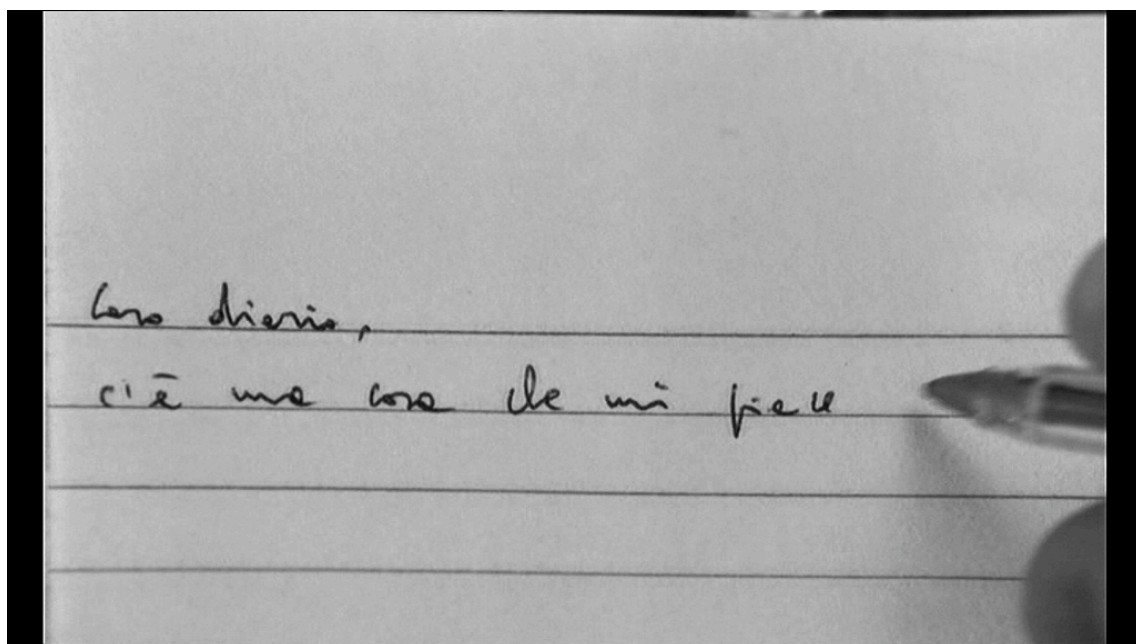 Caro diario,
c'è una cosa che mi piace